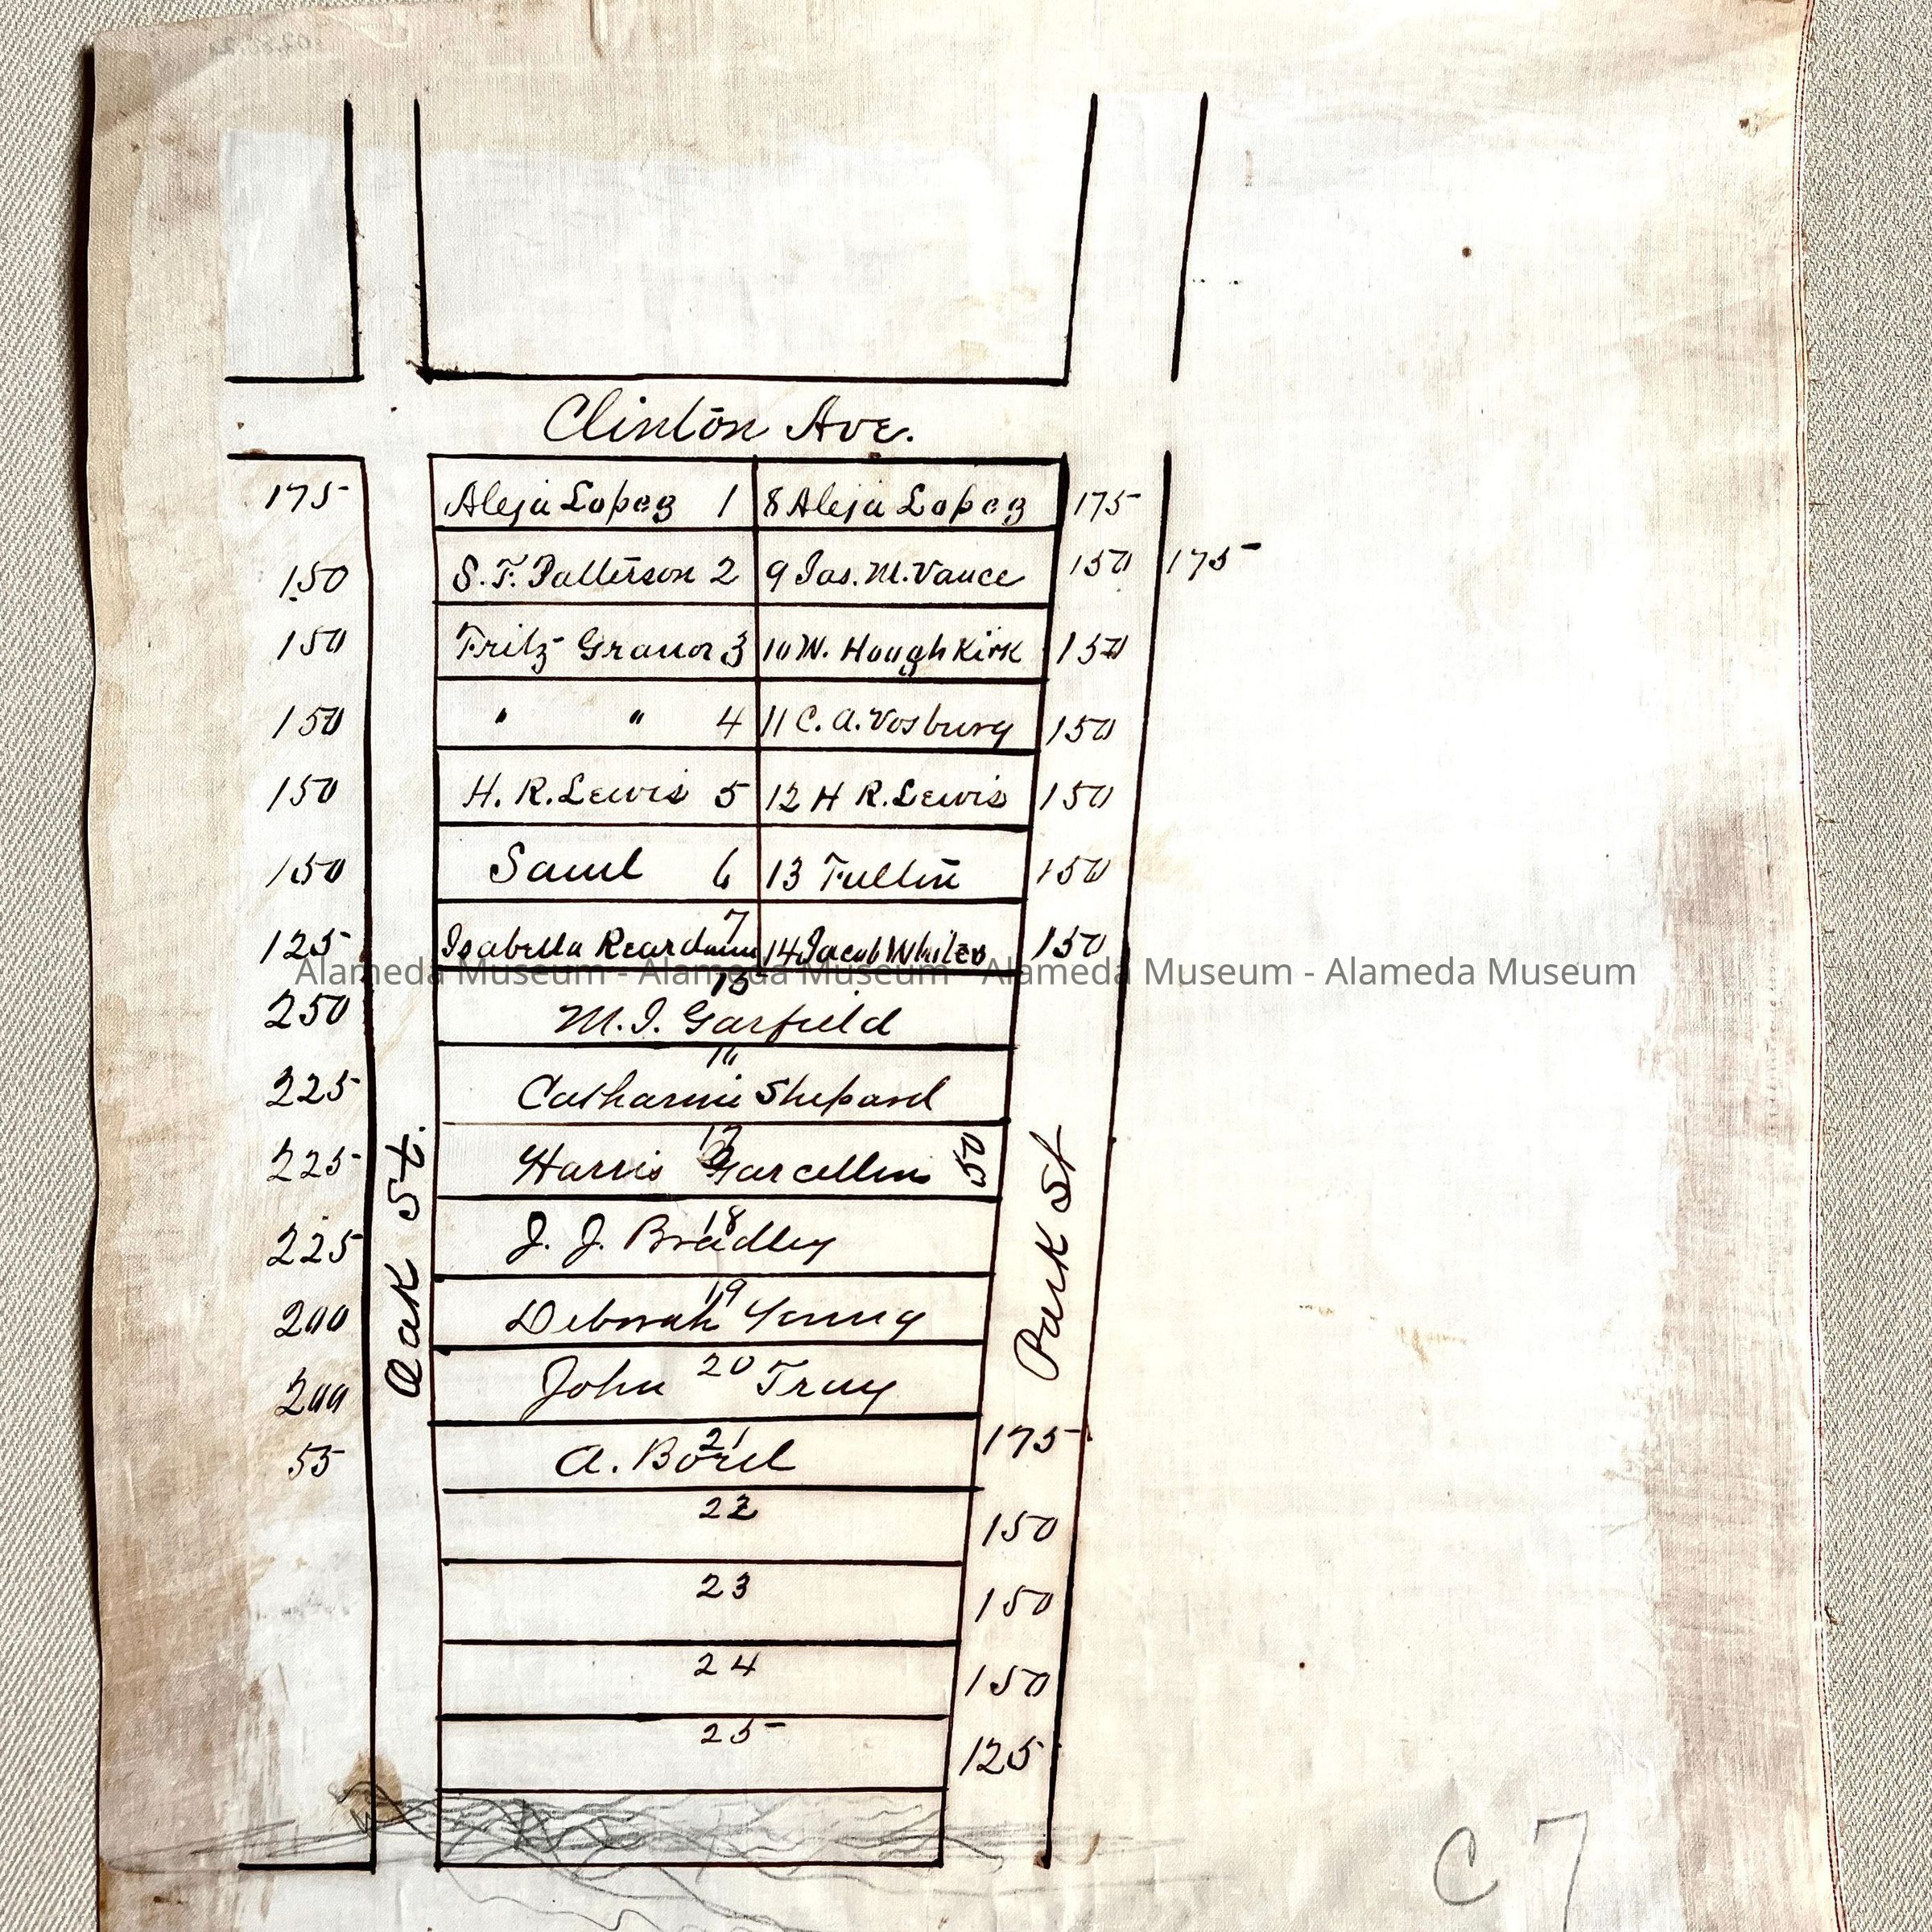 Clinton Ave.
175 Aleja Lopez 1 8 Aleja Lopez 175
150 S. T. Patterson 2 9 Jas. M. Vance 150 175
150 Fritz 3 10 W. Hough Kirk 150
150 " " 4 11 C. A. Vosburg 150
150 H. R. Lewis 5 12 H R. Lewis 150
150 Saml 6 13 150
125 Isabella 7 14 Jacob 150
Alameda Museum - Alameda Museum - Alameda Museum - Alameda Museum
250 15 M. I. Garfield
225 16 Catharine Shepard
225 17 Harris 50
225 18 J. J. Bradley
200 19 Deborah Young
200 20 John
55 21 A. Borel 175
22 150
23 150
24 150
25 125
Oak St.
Park St
C 7